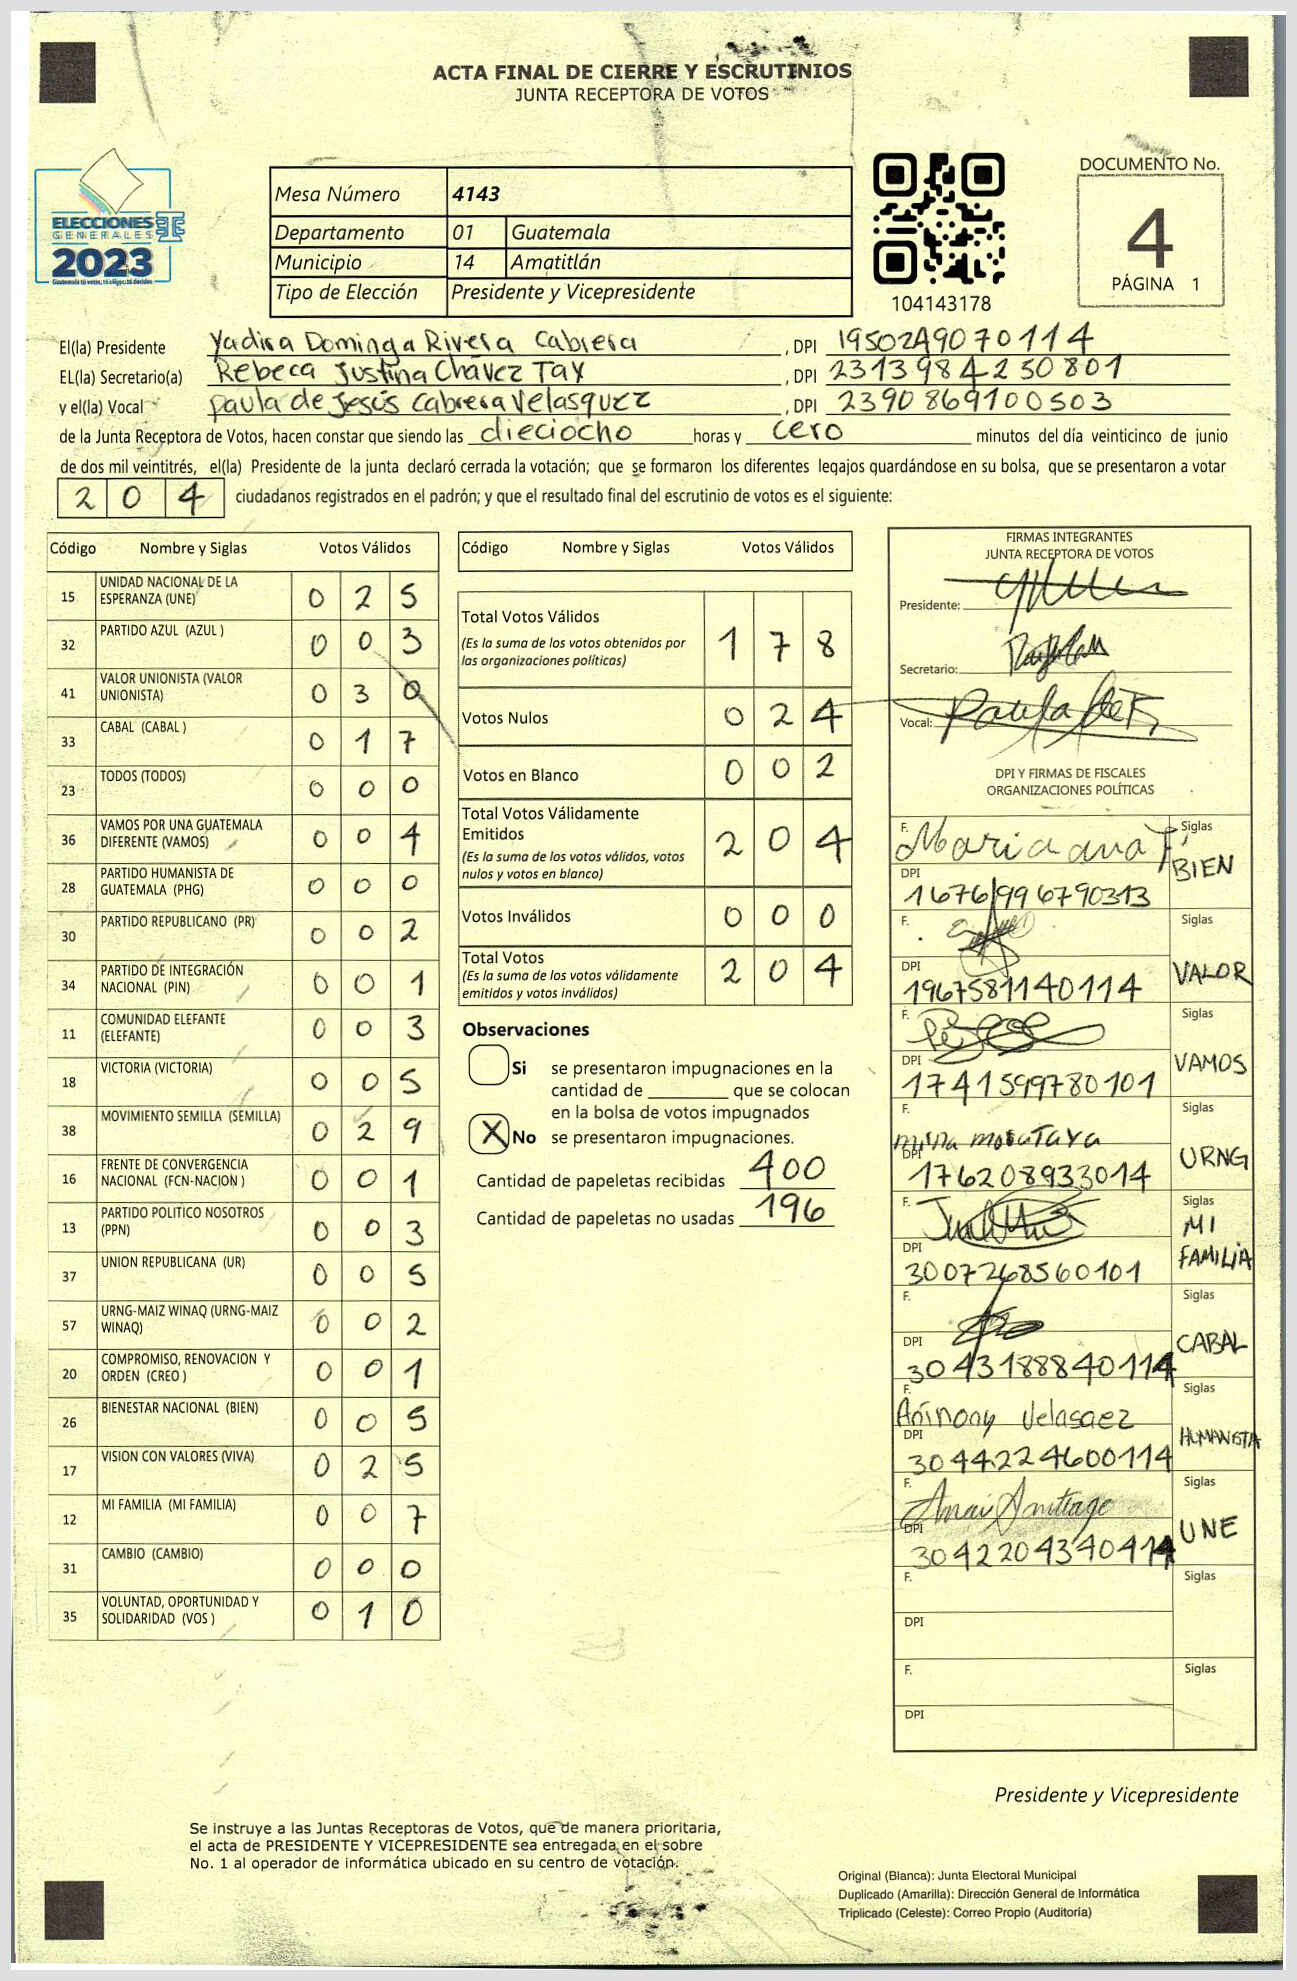 ACTA FINAL DE CIERRE Y ESCRUTINIOS
JUNTA RECEPTORA DE VOTOS
ELECCIONES
GENERALES
2023
Mesa Número 4143
Departamento 01 Guatemala
Municipio 14 Amatitlán
Tipo de Elección Presidente y Vicepresidente
104143178
DOCUMENTO No.
4
PÁGINA 1
El(la) Presidente Yadira Dominga Rivera Cabrera, DPI 1950249070114
EL(la) Secretario(a) Rebeca Justina Chávez Tax, DPI 2313984250801
y el(la) Vocal Paula de Jesús Cabrera Velasquez, DPI 2390869100503
de la Junta Receptora de Votos, hacen constar que siendo las dieciocho horas y cero minutos del día veinticinco de junio
de dos mil veintitrés, el(la) Presidente de la junta declaró cerrada la votación; que se formaron los diferentes legajos quardándose en su bolsa, que se presentaron a votar
204 ciudadanos registrados en el padrón; y que el resultado final del escrutinio de votos es el siguiente:
Código Nombre y Siglas Votos Válidos
15 UNIDAD NACIONAL DE LA ESPERANZA (UNE) 0 2 5
32 PARTIDO AZUL (AZUL ) 0 0 3
41 VALOR UNIONISTA (VALOR UNIONISTA) 0 3 0
33 CABAL (CABAL ) 0 1 7
23 TODOS (TODOS) 0 0 0
36 VAMOS POR UNA GUATEMALA DIFERENTE (VAMOS) 0 0 4
28 PARTIDO HUMANISTA DE GUATEMALA (PHG) 0 0 0
30 PARTIDO REPUBLICANO (PR) 0 0 2
34 PARTIDO DE INTEGRACIÓN NACIONAL (PIN) 0 0 1
11 COMUNIDAD ELEFANTE (ELEFANTE) 0 0 3
18 VICTORIA (VICTORIA) 0 0 5
38 MOVIMIENTO SEMILLA (SEMILLA) 0 2 9
16 FRENTE DE CONVERGENCIA NACIONAL (FCN-NACION ) 0 0 1
13 PARTIDO POLITICO NOSOTROS (PPN) 0 0 3
37 UNION REPUBLICANA (UR) 0 0 5
57 URNG-MAIZ WINAQ (URNG-MAIZ WINAQ) 0 0 2
20 COMPROMISO, RENOVACION Y ORDEN (CREO ) 0 0 1
26 BIENESTAR NACIONAL (BIEN) 0 0 5
17 VISION CON VALORES (VIVA) 0 2 5
12 MI FAMILIA (MI FAMILIA) 0 0 7
31 CAMBIO (CAMBIO) 0 0 0
35 VOLUNTAD, OPORTUNIDAD Y SOLIDARIDAD (VOS ) 0 1 0
Código Nombre y Siglas Votos Válidos
Total Votos Válidos 1 7 8
(Es la suma de los votos obtenidos por las organizaciones políticas)
Votos Nulos 0 2 4
Votos en Blanco 0 0 2
Total Votos Válidamente Emitidos 2 0 4
(Es la suma de los votos válidos, votos nulos y votos en blanco)
Votos Inválidos 0 0 0
Total Votos 2 0 4
(Es la suma de los votos válidamente emitidos y votos inválidos)
Observaciones
Si se presentaron impugnaciones en la
cantidad de ________ que se colocan
en la bolsa de votos impugnados
X No se presentaron impugnaciones.
Cantidad de papeletas recibidas 400
Cantidad de papeletas no usadas 196
FIRMAS INTEGRANTES
JUNTA RECEPTORA DE VOTOS
Presidente:
Secretario:
Vocal:
DPI Y FIRMAS DE FISCALES
ORGANIZACIONES POLÍTICAS
F. Maria ana Siglas BIEN
DPI 1676996790313
F. Siglas VALOR
DPI 1967581140114
F. Siglas VAMOS
DPI 1741599780101
F. Siglas URNG
DPI 176208933014
F. Siglas MI FAMILIA
DPI 3007268560101
F. Siglas CABAL
DPI 3043188840114
F. Siglas HUMANISTA
DPI 3044224600114
F. Siglas UNE
DPI
F. Siglas
DPI
F. Siglas
DPI
Presidente y Vicepresidente
Se instruye a las Juntas Receptoras de Votos, que de manera prioritaria,
el acta de PRESIDENTE Y VICEPRESIDENTE sea entregada en el sobre
No. 1 al operador de informática ubicado en su centro de votación.
Original (Blanca): Junta Electoral Municipal
Duplicado (Amarilla): Dirección General de Informática
Triplicado (Celeste): Correo Propio (Auditoría)